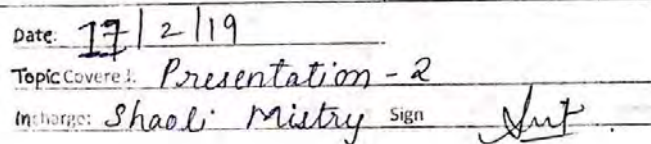 Date: 17/2/19
Topic Covered: Presentation - 2
Incharge: Shaoli Mistry Sign